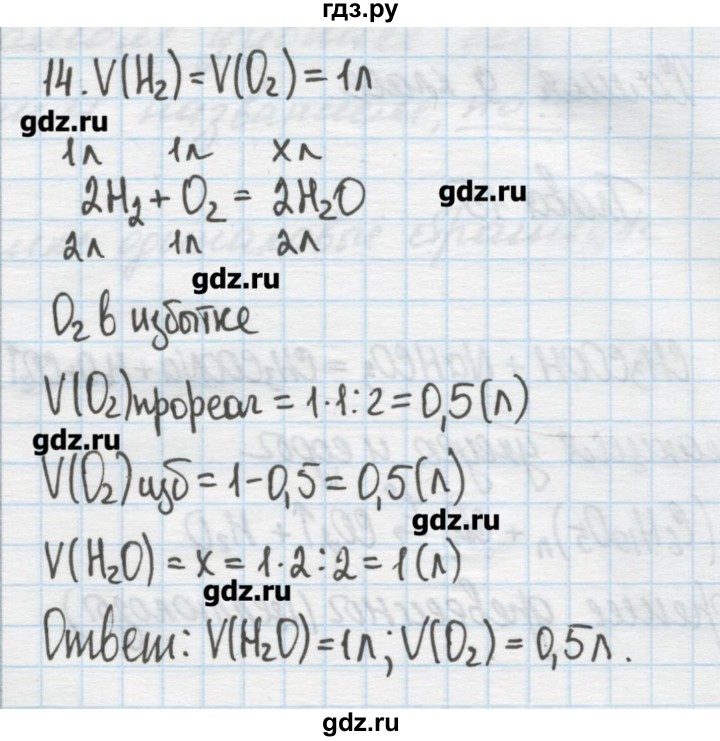 гдз.ру
14. V(H₂) = V(O₂) = 1л
gdz.ru
1л 1л xл
2H₂ + O₂ = 2H₂O
gdz.ru
2л 1л 2л
gdz.ru
O₂ в избытке
V(O₂)прореаг = 1·1:2 = 0,5(л)
gdz.ru
V(O₂)изб = 1-0,5 = 0,5(л)
gdz.ru
V(H₂O) = x = 1·2:2 = 1(л)
gdz.ru
Ответ: V(H₂O) = 1л; V(O₂) = 0,5л.
gdz.ru